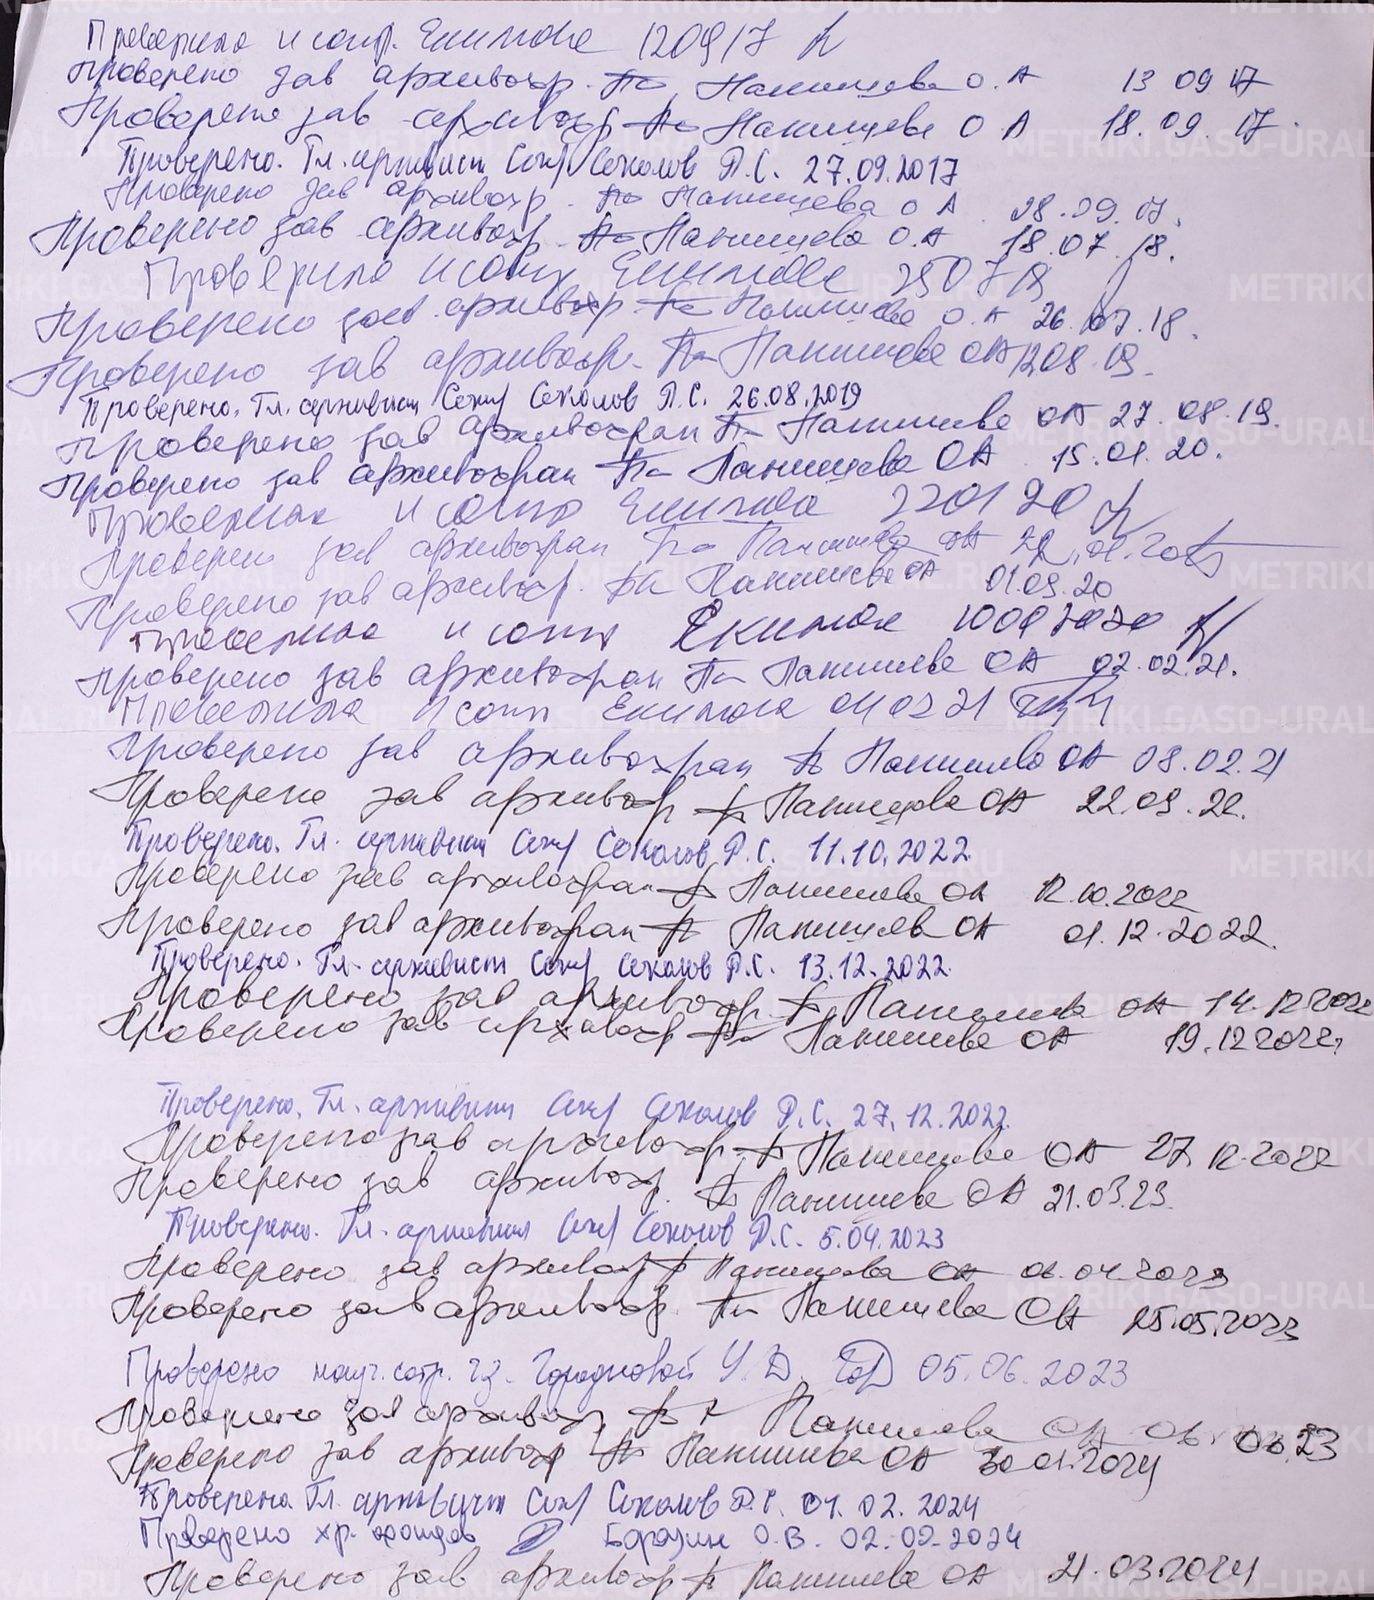 Проверила и сотр. Екимова 120917
Проверено зав архивохр. Панищева О.А 13 09 17
Проверено зав архивохр Панищева О А 18.09.17.
Проверено. Гл. архивист Соколов Д.С. 27.09.2017
Проверено зав архивохр. Панищева О А. 28.09.17.
Проверено зав архивохр. Панищева О.А 18.07.18.
Проверила и сотр Екимова 250718
Проверено зав архивохр Панищева О.А 26.07.18.
Проверено зав архивохр. Панищева ОА 1208.19.
Проверено. Гл. архивист Соколов Д.С. 26.08.2019
Проверено зав архивохран Панищева ОА 27.08.19.
Проверено зав архивохран Панищева ОА 15.01.20.
Проверила и сотр Екимова 220120
Проверено зав архивохран Панищева ОА
Проверено зав архивохр. Панищева ОА 01.09.20
Проверила и сотр Екимова 10092020
Проверено зав архивохран Панищева ОА 02.02.21.
Проверила и сотр Екимова 040221
Проверено зав архивохран Панищева ОА 08.02.21
Проверено зав архивохр Панищева ОА 22.09.22.
Проверено. Гл. архивист Соколов Д.С. 11.10.2022
Проверено зав архивохран Панищева ОА 12.10.2022
Проверено зав архивохран Панищева ОА 01.12.2022.
Проверено. Гл. архивист Соколов Д.С. 13.12.2022.
Проверено зав архивохр. Панищева ОА 14.12.2022
Проверено зав архивохр Панищева ОА 19.12.2022.
Проверено. Гл. архивист Соколов Д.С. 27.12.2022.
Проверено зав архивохр. Панищева ОА 27.12.2022
Проверено зав архивохр. Панищева ОА 21.03.23.
Проверено. Гл. архивист Соколов Д.С. 5.04.2023
Проверено зав архивохр Панищева ОА 06.04.2023
Проверено зав архивохр. Панищева ОА 25.05.2023
Проверено науч. сотр. У. Д. 05.06.2023
Проверено зав архивохр Панищева ОА 06.06.23
Проверено зав архивохр Панищева ОА 30 01.2024
Проверено. Гл. архивист Соколов Д.С. 01.02.2024
Проверено хр. фондов О.В. 02.02.2024
Проверено зав архивохр Панищева ОА 21.03.2024
METRIKI.GASO-URAL.RU